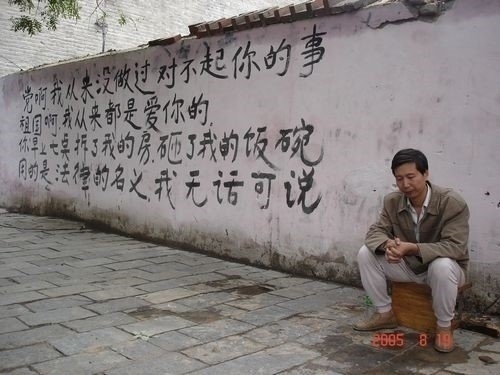 党啊我从来没做过对不起你的事
祖国啊我从来都是爱你的
你早上七点拆了我的房砸了我的饭碗
用的是法律的名义我无话可说
2005 8 19